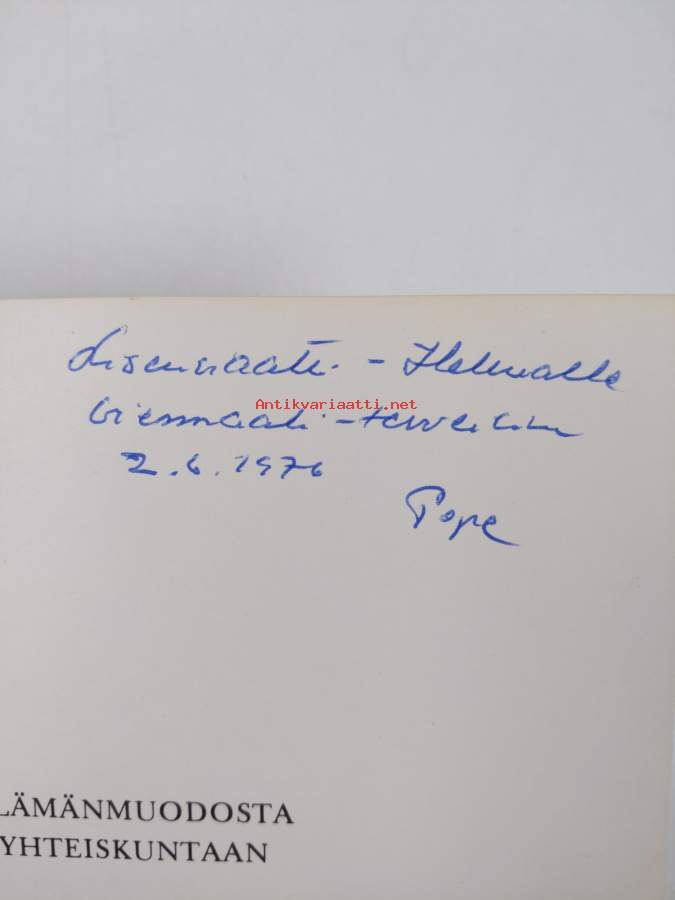 Lisensiaatti - Helmalle
Antikvariaatti.net
- terveisin
2.6.1976
Pope
LÄMÄNMUODOSTA
YHTEISKUNTAAN